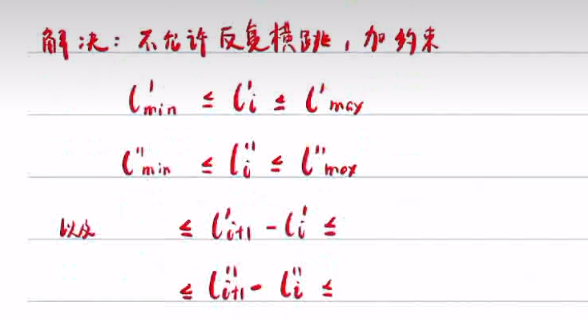 解决：不允许反复横跳，加约束
l'min ≤ l'i ≤ l'max
l''min ≤ l''i ≤ l''max
以及 ≤ l'i+1 - l'i ≤
≤ l''i+1 - l''i ≤